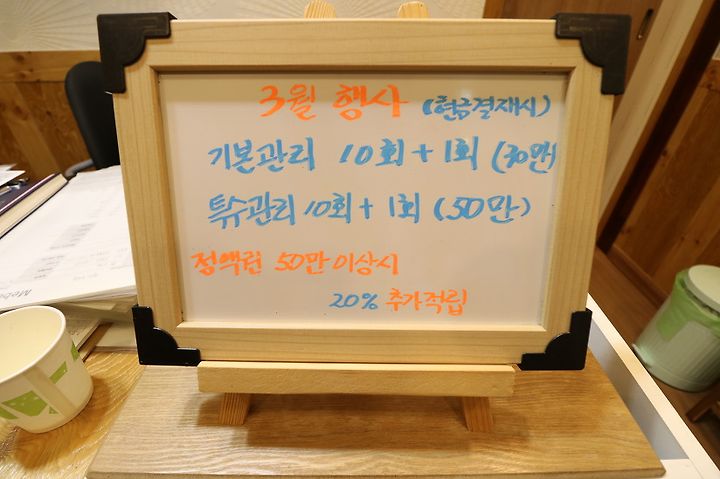 3월 행사 (현금결재시)
기본관리 10회 + 1회 (30만)
특수관리 10회 + 1회 (50만)
정액권 50만 이상시
20% 추가적립